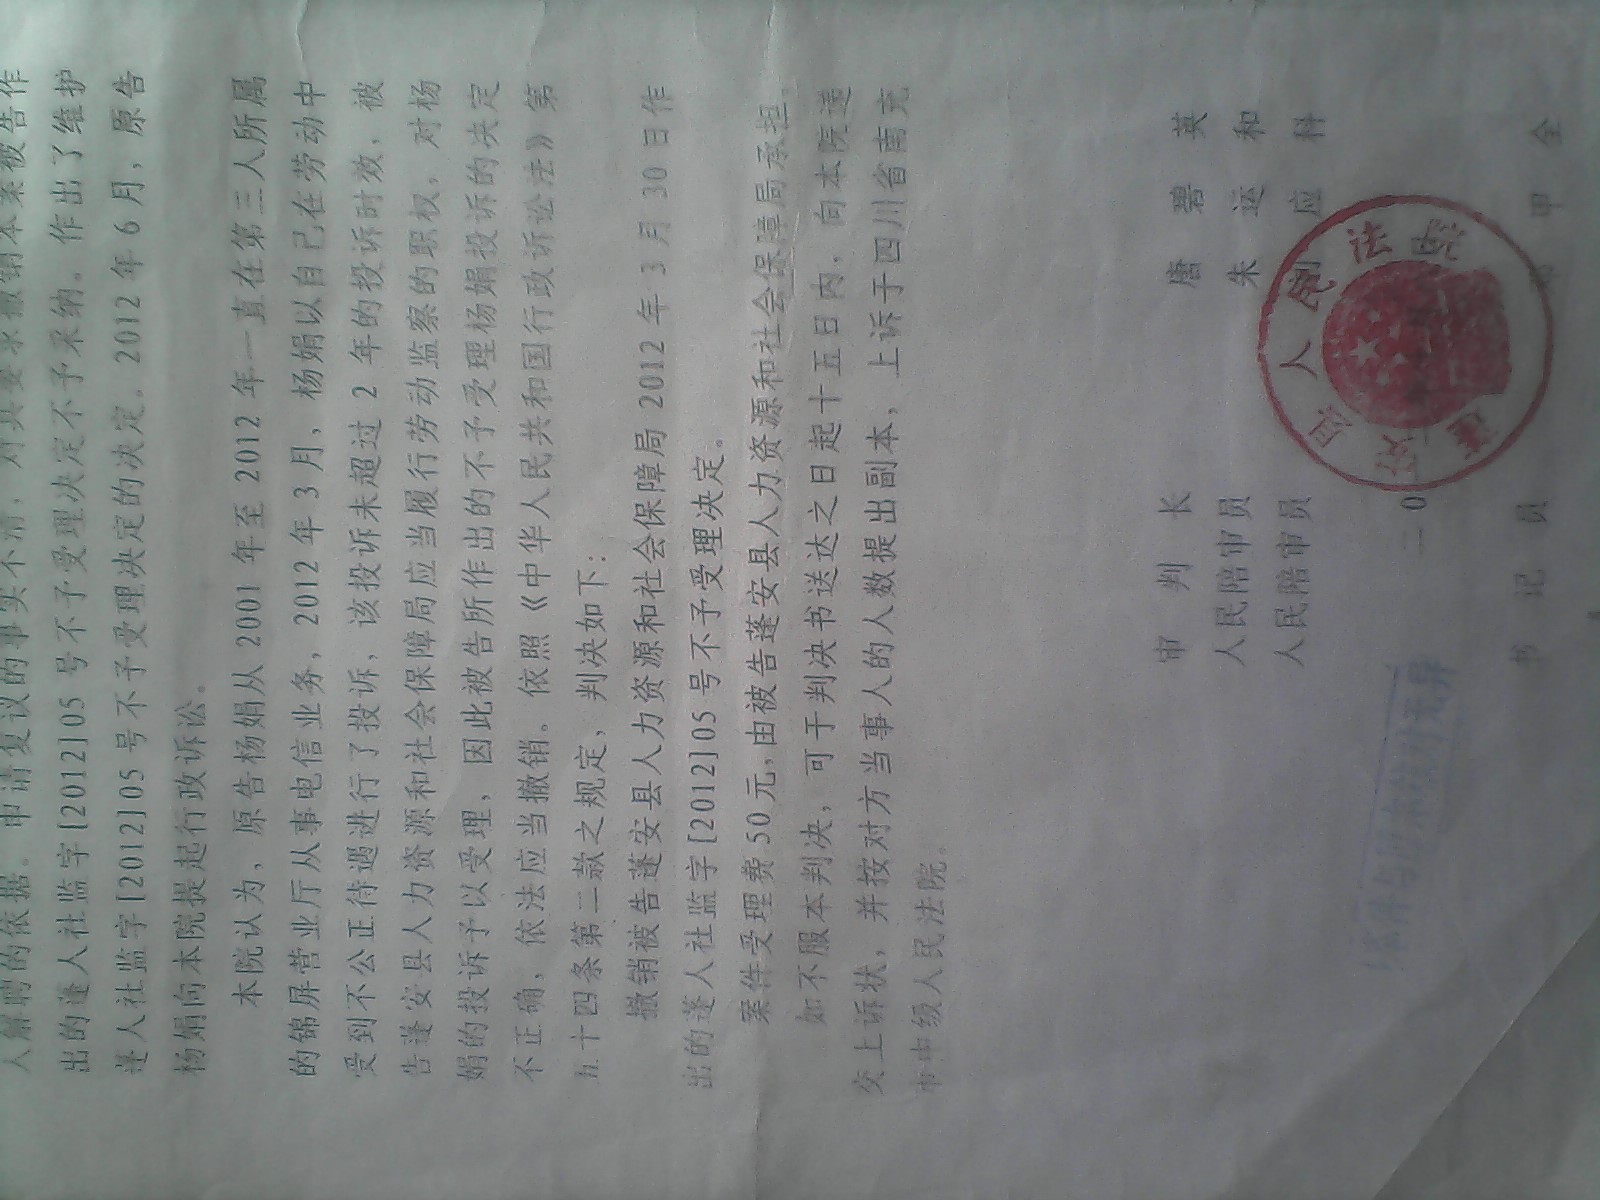 人解聘的依据。申请复议的事实不清，对其要求撤销本案被告作
出的蓬人社监字[2012]05 号不予受理决定不予采纳。作出了维护
蓬人社监字[2012]05 号不予受理决定的决定。2012 年 6 月，原告
杨娟向本院提起行政诉讼。
本院认为，原告杨娟从 2001 年至 2012 年一直在第三人所属
的锦屏营业厅从事电信业务，2012 年 3 月，杨娟以自己在劳动中
受到不公正待遇进行了投诉，该投诉未超过 2 年的投诉时效，被
告蓬安县人力资源和社会保障局应当履行劳动监察的职权，对杨
娟的投诉予以受理，因此被告所作出的不予受理杨娟投诉的决定
不正确，依法应当撤销。依照《中华人民共和国行政诉讼法》第
五十四条第二款之规定，判决如下：
撤销被告蓬安县人力资源和社会保障局 2012 年 3 月 30 日作
出的蓬人社监字[2012]05 号不予受理决定。
案件受理费 50 元，由被告蓬安县人力资源和社会保障局承担。
如不服本判决，可于判决书送达之日起十五日内，向本院递
交上诉状，并按对方当事人的人数提出副本，上诉于四川省南充
市中级人民法院。
审 判 长 唐 碧 英
人民陪审员 朱 运 和
人民陪审员 应 科
二0
蓬安县人民法院
本件与原本核对无异
书 记 员 甲 全